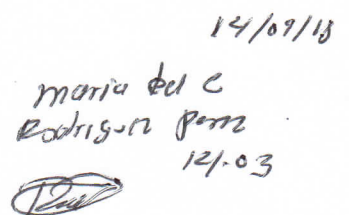 14/09/18
Maria del C
Rodriguez Perez
12:03